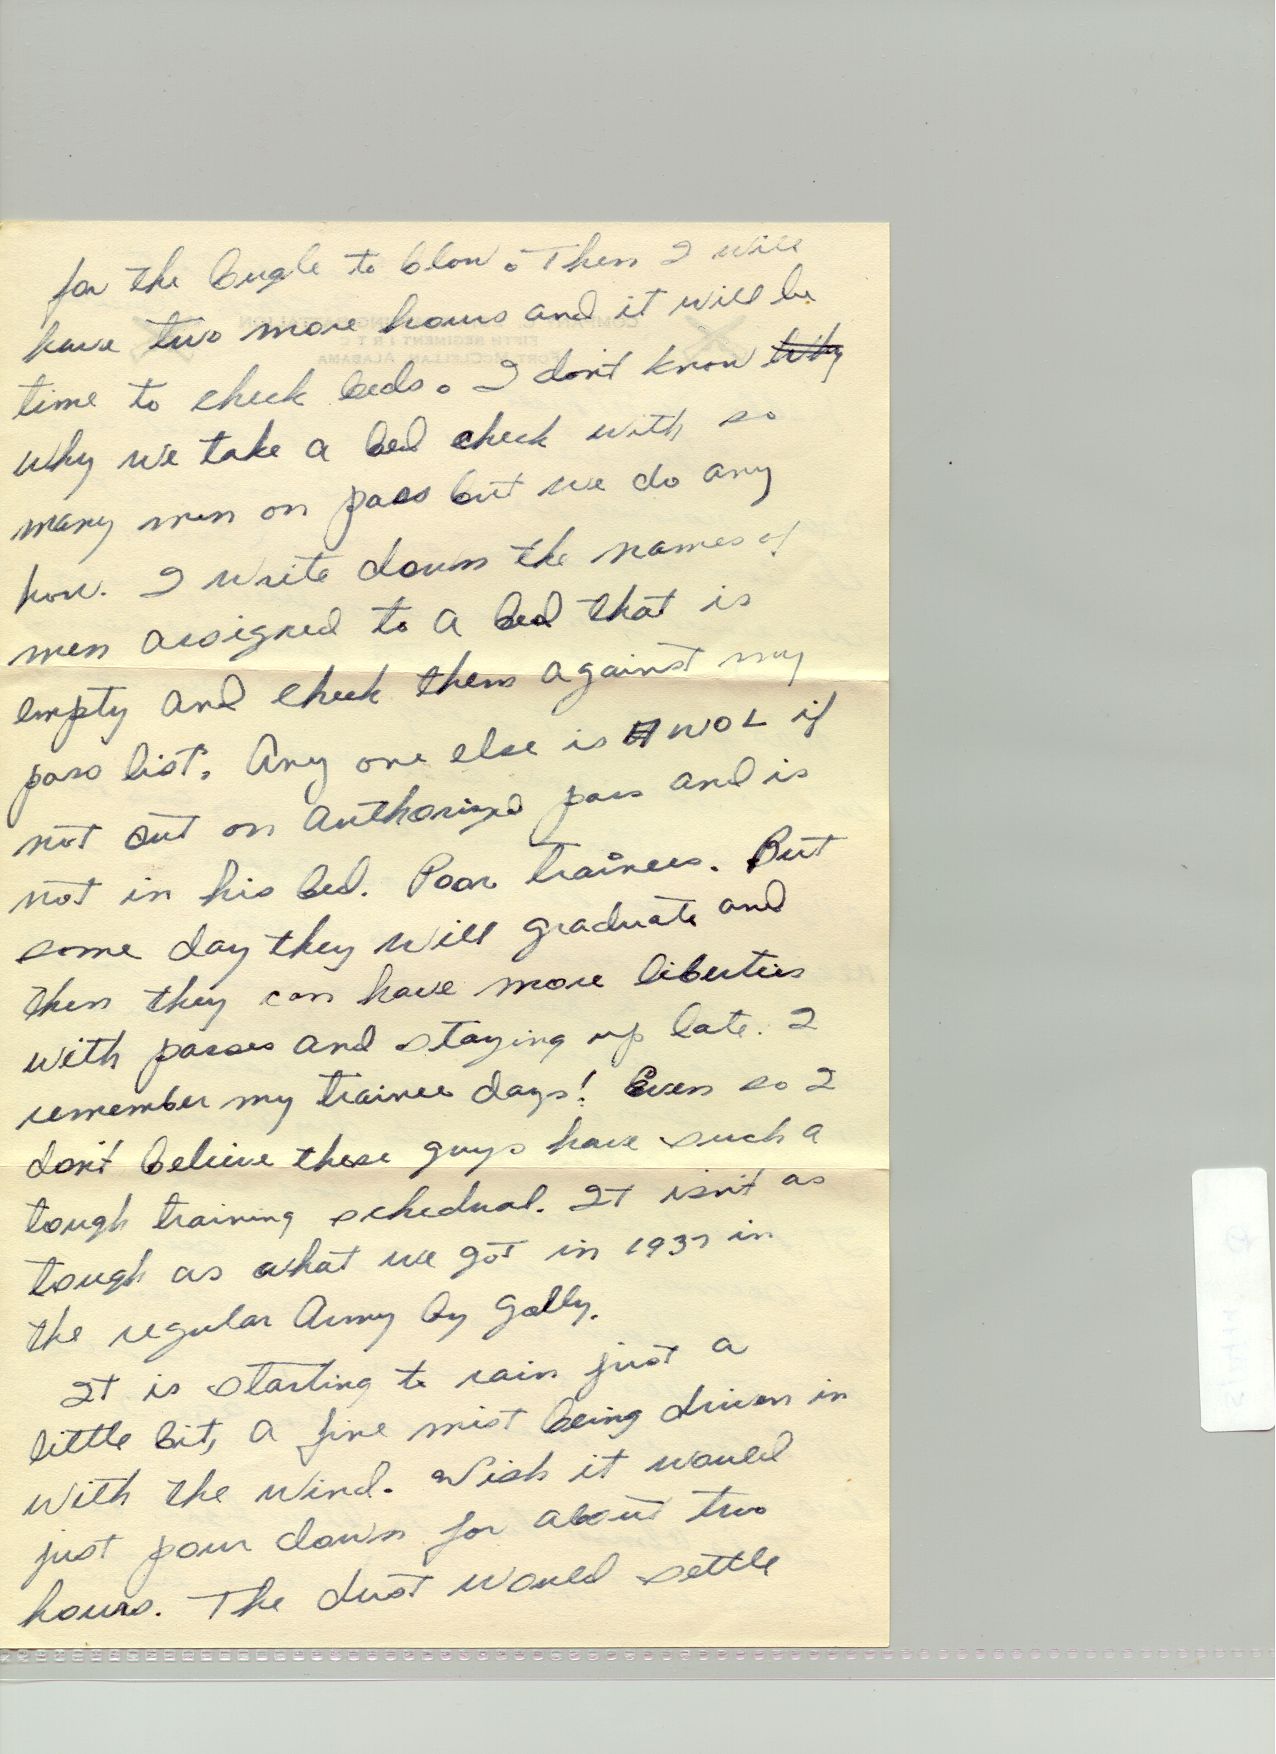 for the bugle to blow. Then I will
have two more hours and it will be
time to check beds. I don't know why
why we take a bed check with so
many men on pass but we do any
how. I write down the names of
men assigned to a bed that is
empty and check them against my
pass list. Any one else is AWOL if
not out on authorized pass and is
not in his bed. Poor trainees. But
some day they will graduate and
then they can have more liberties
with passes and staying up late. I
remember my trainee days! Even so I
don't believe these guys have such a
tough training schedual. It isn't as
tough as what we got in 1937 in
the regular Army by golly.
It is starting to rain just a
little bit, a fine mist being driven in
with the wind. Wish it would
just pour down for about two
hours. The dust would settle
FIFTH REGIMENT I R T C
FORT MCCLELLAN, ALABAMA